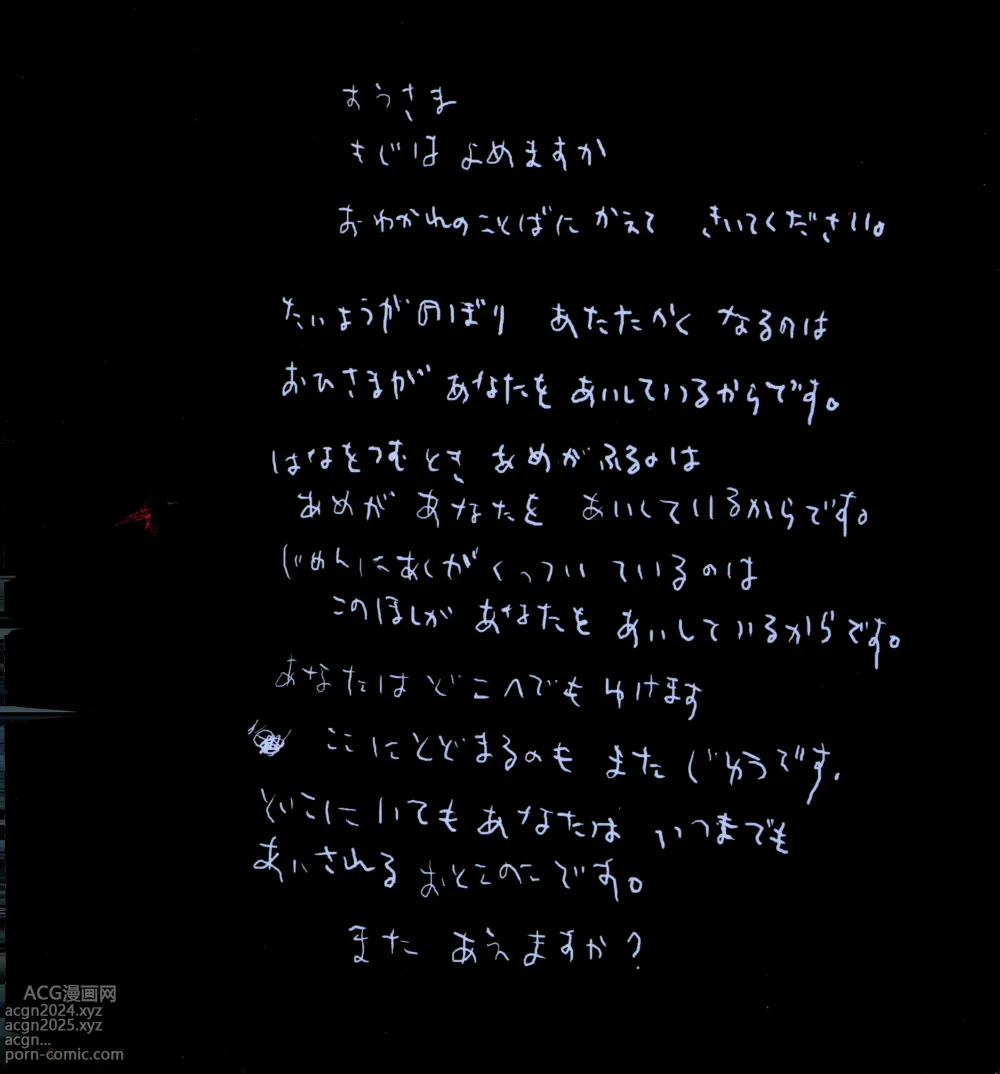 おうさま
もじは よめますか
おわかれのことばに かえて きいてください。
たいようがのぼり あたたかく なるのは
おひさまが あなたを あいしているからです。
はなをつむ とき あめがふるのは
あめが あなたを あいしているからです。
じめんにあしがくっついているのは
このほしが あなたを あいしているからです。
あなたはどこへでも ゆけます
ここにとどまるのも また じゆうです.
どこにいても あなたは いつまでも
あいされる おとこのこです。
また あえますか?
ACG漫画网
acgn2024.xyz
acgn2025.xyz
acgn...
porn-comic.com